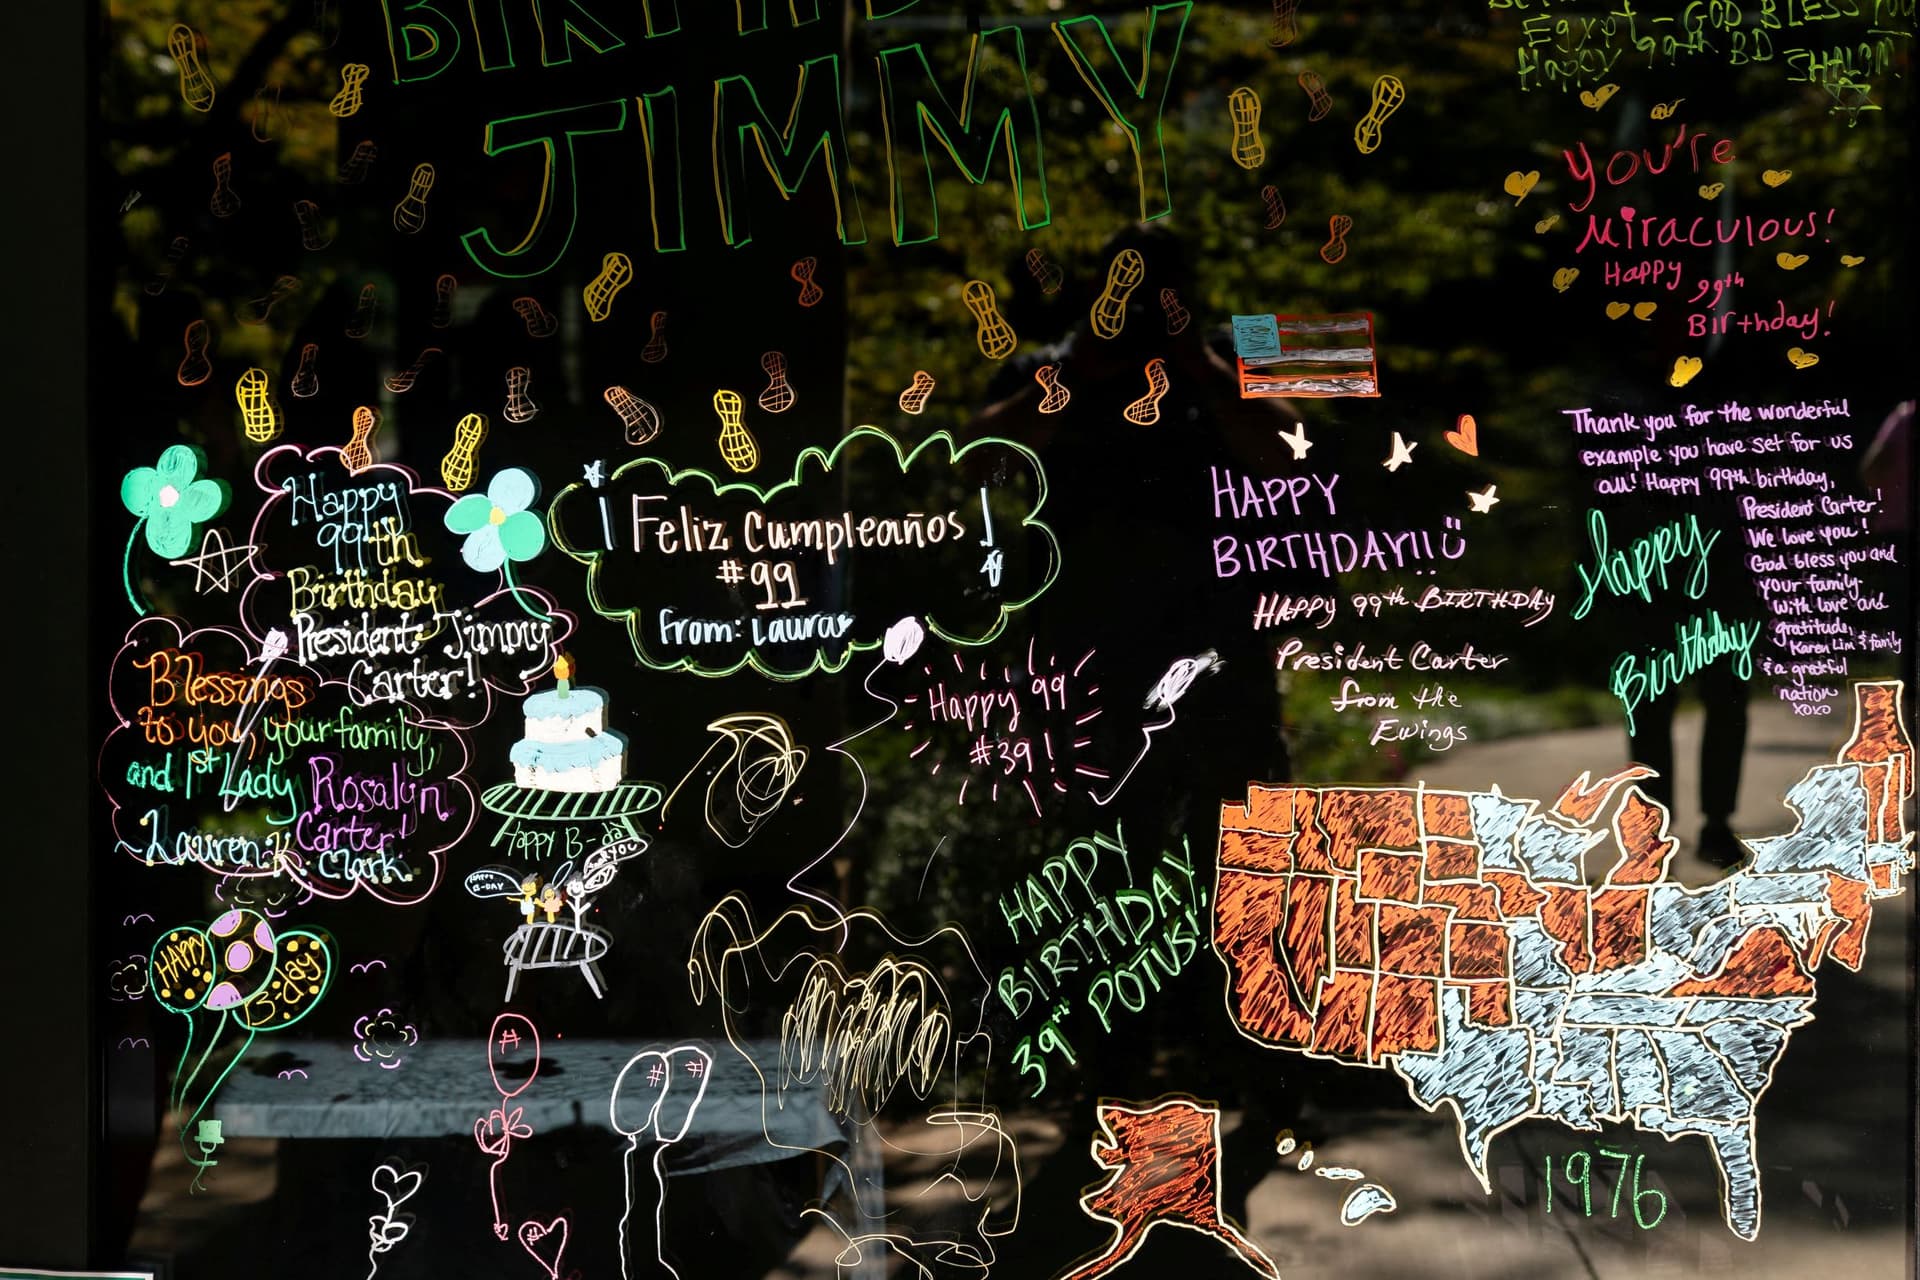 BIRTHD
JIMMY
Egypt - GOD BLESS YOU
Happy 99th BD
SHALOM
You're
Miraculous!
Happy
99th
Birthday!
Happy
99th
Birthday
President Jimmy
Carter!
¡Feliz Cumpleaños!
#99
From: Laura
HAPPY
BIRTHDAY!!
HAPPY 99th BIRTHDAY
President Carter
from the
Ewings
Thank you for the wonderful
example you have set for us
all! Happy 99th birthday,
President Carter!
We love you!
God bless you and
your family.
With love and
gratitude,
Karen Lim & family
& a grateful
nation
XOXO
Happy
Birthday
Blessings
to you, your family,
and 1st Lady Rosalyn
Carter!
~Lauren Clark
Happy 99
#39!
Happy B-da
HAPPY
B-DAY
YOU
HAPPY
BIRTHDAY
39th POTUS!!
HAPPY
B-day
#
# #
1976